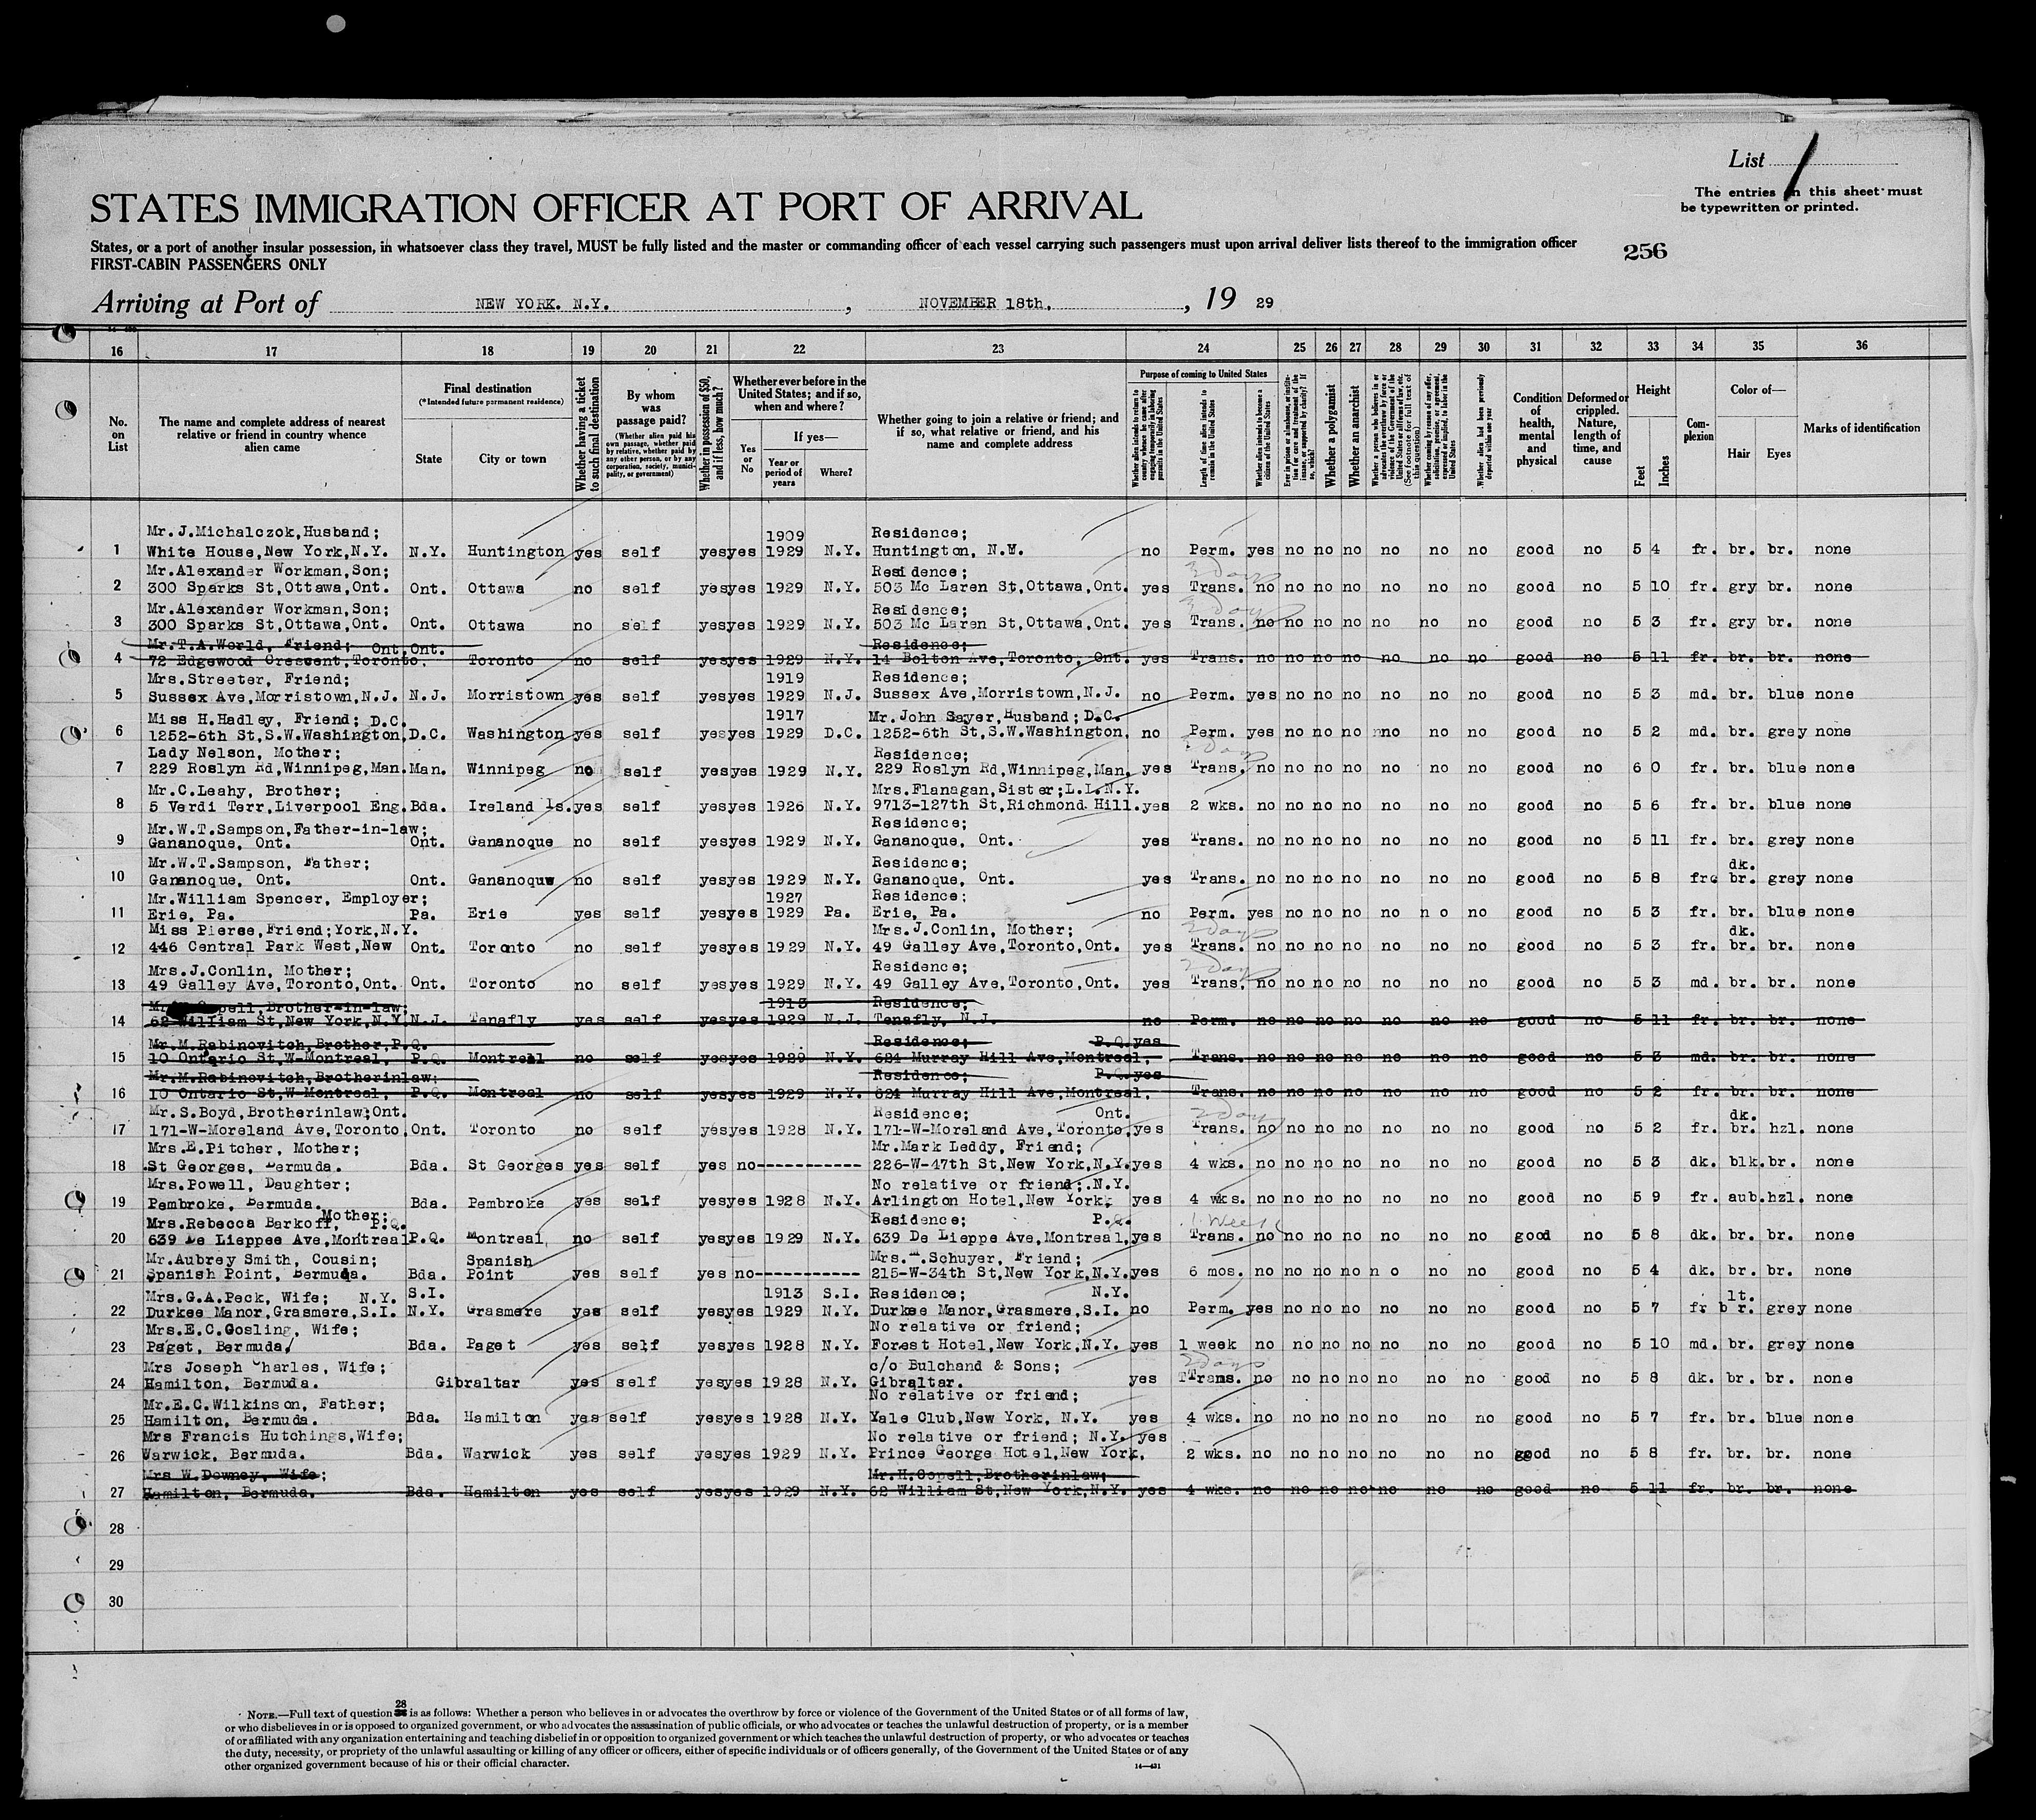 List 1
The entries on this sheet must
be typewritten or printed.
STATES IMMIGRATION OFFICER AT PORT OF ARRIVAL
States, or a port of another insular possession, in whatsoever class they travel, MUST be fully listed and the master or commanding officer of each vessel carrying such passengers must upon arrival deliver lists thereof to the immigration officer
FIRST-CABIN PASSENGERS ONLY
256
Arriving at Port of NEW YORK. N.Y. , NOVEMBER 18th. , 19 29
16 17 18 19 20 21 22 23 24 25 26 27 28 29 30 31 32 33 34 35 36
No. on List
The name and complete address of nearest relative or friend in country whence alien came
Final destination
(*Intended future permanent residence)
State City or town
Whether having a ticket to such final destination
By whom was passage paid?
(Whether alien paid his own passage, whether paid by relative, whether paid by any other person, or by any corporation, society, municipality, or government)
Whether in possession of $50, and if less, how much?
Whether ever before in the United States; and if so, when and where?
Yes or No
If yes—
Year or period of years
Where?
Whether going to join a relative or friend; and if so, what relative or friend, and his name and complete address
Purpose of coming to United States
Length of time alien intends to remain in the United States
Whether alien intends to become a citizen of the United States
Whether a polygamist
Whether an anarchist
Whether alien had been previously deported within one year
Condition of health, mental and physical
Deformed or crippled. Nature, length of time, and cause
Height
Feet Inches
Complexion
Color of—
Hair Eyes
Marks of identification
Mr.J.Michalczok,Husband; 1909 Residence;
1 White House,New York,N.Y. N.Y. Huntington yes self yes yes 1929 N.Y. Huntington, N.Y. no Perm. yes no no no no no no good no 5 4 fr. br. br. none
Mr.Alexander Workman,Son; Residence; 3 Days
2 300 Sparks St,Ottawa,Ont. Ont. Ottawa no self yes yes 1929 N.Y. 503 Mc Laren St,Ottawa,Ont. yes Trans. no no no no no no no good no 5 10 fr. gry br. none
Mr.Alexander Workman,Son; Residence; 3 Days
3 300 Sparks St,Ottawa,Ont. Ont. Ottawa no self yes yes 1929 N.Y. 503 Mc Laren St,Ottawa,Ont. yes Trans. no no no no no no no good no 5 3 fr. gry br. none
Mr.T.A.World, Friend; Ont.Ont. Residence;
4 72 Edgewood Crescent,Toronto. Toronto no self yes yes 1929 N.Y. 14 Bolton Ave,Toronto, Ont. yes Trans. no no no no no no no good no 5 11 fr. br. br. none
Mrs.Streeter, Friend; 1919 Residence;
5 Sussex Ave,Morristown,N.J. N.J. Morristown yes self yes yes 1929 N.J. Sussex Ave,Morristown,N.J. no Perm. yes no no no no no no good no 5 3 md. br. blue none
Miss H.Hadley, Friend; D.C. 1917 Mr.John Sayer,Husband; D.C.
6 1252-6th St,S.W.Washington, D.C. Washington yes self yes yes 1929 D.C. 1252-6th St,S.W.Washington. no Perm. yes no no no no no no good no 5 2 md. br. grey none
Lady Nelson, Mother; Residence; Days
7 229 Roslyn Rd,Winnipeg,Man. Man. Winnipeg no self yes yes 1929 N.Y. 229 Roslyn Rd,Winnipeg,Man. yes Trans. no no no no no no no good no 6 0 fr. br. blue none
Mr.C.Leahy, Brother; Mrs.Flanagan,Sister;L.I.N.Y.
8 5 Verdi Terr,Liverpool Eng. Bda. Ireland Is. yes self yes yes 1926 N.Y. 9713-127th St,Richmond Hill. yes 2 wks. no no no no no no no good no 5 6 fr. br. blue none
Mr.W.T.Sampson,Father-in-law; Residence;
9 Gananoque, Ont. Ont. Gananoque no self yes yes 1929 N.Y. Gananoque, Ont. yes Trans. no no no no no no no good no 5 11 fr. br. grey none
Mr.W.T.Sampson, Father; Residence; dk.
10 Gananoque, Ont. Ont. Gananoquw no self yes yes 1929 N.Y. Gananoque, Ont. yes Trans. no no no no no no no good no 5 8 fr. br. grey none
Mr.William Spencer, Employer; 1927 Residence;
11 Erie, Pa. Pa. Erie yes self yes yes 1929 Pa. Erie, Pa. no Perm. yes no no no no n o no good no 5 3 fr. br. blue none
Miss Pierse,Friend;York,N.Y. Mrs.J.Conlin, Mother; 2 Days dk.
12 446 Central Park West,New Ont. Toronto no self yes yes 1929 N.Y. 49 Galley Ave,Toronto,Ont. yes Trans. no no no no no no no good no 5 3 fr. br. br. none
Mrs.J.Conlin, Mother; Residence; 2 Days
13 49 Galley Ave,Toronto,Ont. Ont. Toronto no self yes yes 1929 N.Y. 49 Galley Ave,Toronto,Ont. yes Trans. no no no no no no no good no 5 3 md. br. br. none
Brother-in-law; 1913 Residence;
14 62 William St,New York,N.Y. N.J. Tenafly yes self yes yes 1929 N.J. Tenafly, N.J. no Perm. no no no no no no no good no 5 11 fr. br. br. none
Mr.M.Rabinovitch,Brother,P.Q. Residence; P.Q. yes
15 10 Ontario St,W-Montreal, P.Q. Montreal no self yes yes 1929 N.Y. 624 Murray Hill Ave,Montreal. Trans. no no no no no no no good no 5 3 md. br. br. none
Mr.M.Rabinovitch,Brotherinlaw; Residence; P.Q. yes
16 10 Ontario St,W-Montreal, P.Q. Montreal no self yes yes 1929 N.Y. 624 Murray Hill Ave,Montreal. Trans. no no no no no no no good no 5 2 fr. br. br. none
Mr.S.Boyd,Brotherinlaw;Ont. Residence; Ont. 2 Days dk.
17 171-W-Moreland Ave,Toronto. Ont. Toronto no self yes yes 1928 N.Y. 171-W-Moreland Ave,Toronto. yes Trans. no no no no no no no good no 5 2 fr. br. hzl. none
Mrs.E.Pitcher, Mother; Mr.Mark Leddy, Friend;
18 St Georges, Bermuda. Bda. St Georges yes self yes no----------- 226-W-47th St,New York,N.Y. yes 4 wks. no no no no no no no good no 5 3 dk. blk. br. none
Mrs.Powell, Daughter; No relative or friend; N.Y.
19 Pembroke, Bermuda. Bda. Pembroke yes self yes yes 1928 N.Y. Arlington Hotel,New York. yes 4 wks. no no no no no no no good no 5 9 fr. aub. hzl. none
Mrs.Rebecca Barkoff, Mother; P.Q. Residence; P.Q. 1 Week
20 639 De Lieppee Ave,Montreal P.Q. Montreal, no self yes yes 1929 N.Y. 639 De Lieppe Ave,Montreal, yes Trans. no no no no no no no good no 5 8 dk. br. br. none
Mr.Aubrey Smith, Cousin; Spanish Mrs. Schuyer, Friend;
21 Spanish Point, Bermuda. Bda. Point yes self yes no----------- 215-W-34th St,New York,N.Y. yes 6 mos. no no no no n o no no good no 5 4 dk. br. br. none
Mrs.G.A.Peck, Wife; N.Y. S.I. 1913 S.I. Residence; N.Y. lt.
22 Durkee Manor,Grasmere,S.I. N.Y. Grasmere yes self yes yes 1929 N.Y. Durkee Manor,Grasmere,S.I. no Perm. yes no no no no no no good no 5 7 fr br. grey none
Mrs.E.C.Gosling, Wife; No relative or friend;
23 Paget, Bermuda. Bda. Paget yes self yes yes 1928 N.Y. Forest Hotel,New York,N.Y. yes 1 week no no no no no no no good no 5 10 md. br. grey none
Mrs Joseph Charles, Wife; c/o Bulchand & Sons; 2 Days
24 Hamilton, Bermuda. Gibraltar yes self yes yes 1928 N.Y. Gibraltar. yes TTrans. no no no no no no no good no 5 8 dk. br. br. none
Mr.E.C.Wilkinson, Father; No relative or friend;
25 Hamilton, Bermuda. Bda. Hamilton yes self yes yes 1928 N.Y. Yale Club,New York, N.Y. yes 4 wks. no no no no no no no good no 5 7 fr. br. blue none
Mrs Francis Hutchings,Wife; No relative or friend; N.Y. yes
26 Warwick, Bermuda. Bda. Warwick yes self yes yes 1929 N.Y. Prince George Hotel,New York. 2 wks. no no no no no no no good no 5 8 fr. br. br. none
Mrs W.Downey, Wife; Mr.H.Copell,Brotherinlaw;
27 Hamilton, Bermuda. Bda. Hamilton yes self yes yes 1929 N.Y. 62 William St,New York,N.Y. yes 4 wks. no no no no no no no good no 5 11 fr. br. br. none
28
29
30
28
NOTE.—Full text of question is as follows: Whether a person who believes in or advocates the overthrow by force or violence of the Government of the United States or of all forms of law,
or who disbelieves in or is opposed to organized government, or who advocates the assassination of public officials, or who advocates or teaches the unlawful destruction of property, or is a member
of or affiliated with any organization entertaining and teaching disbelief in or opposition to organized government or which teaches the unlawful destruction of property, or who advocates or teaches
the duty, necessity, or propriety of the unlawful assaulting or killing of any officer or officers, either of specific individuals or of officers generally, of the Government of the United States or of any
other organized government because of his or their official character.
14—431